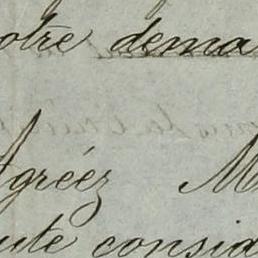 otre dema
Agréez M
ute consid